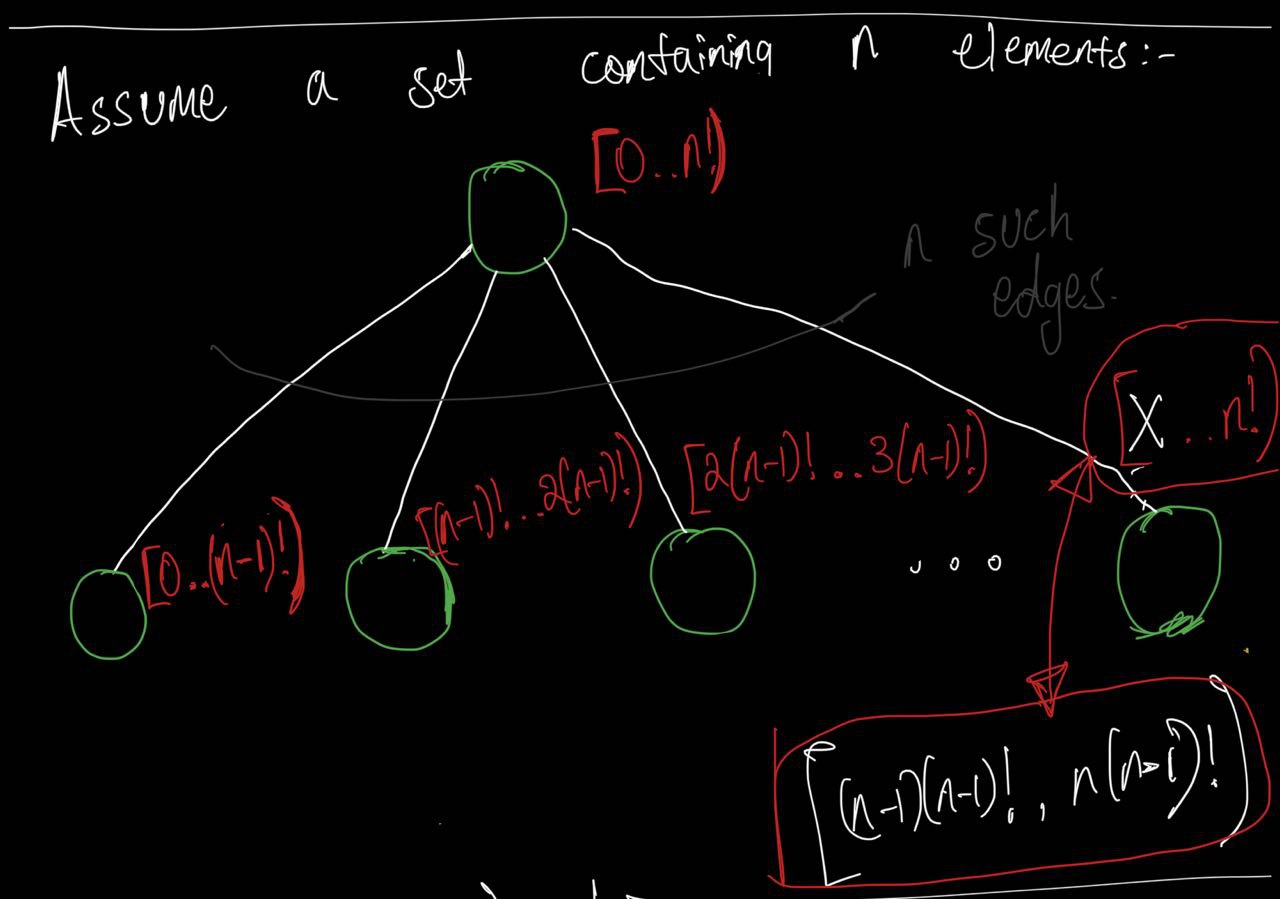 Assume a set containing n elements:-
[0..n!)
n such
edges.
[X...n!)
[0..(n-1)!)
[(n-1)!...2(n-1)!)
[2(n-1)!...3(n-1)!)
...
[(n-1)(n-1)!., n(n-1)!)